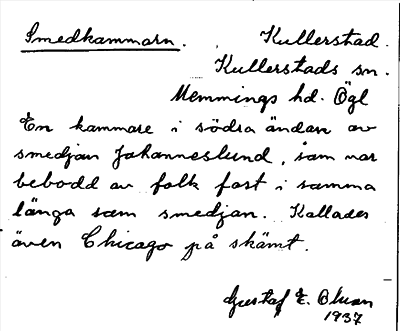 Smedkammarn. Kullerstad.
Kullerstads sn.
Memmings hd. Ögl
En kammare i södra ändan av
smedjan Johanneslund, som var
bebodd av folk fast i samma
länga som smedjan. Kallades
även Chicago på skämt.
Gustaf E.
1937